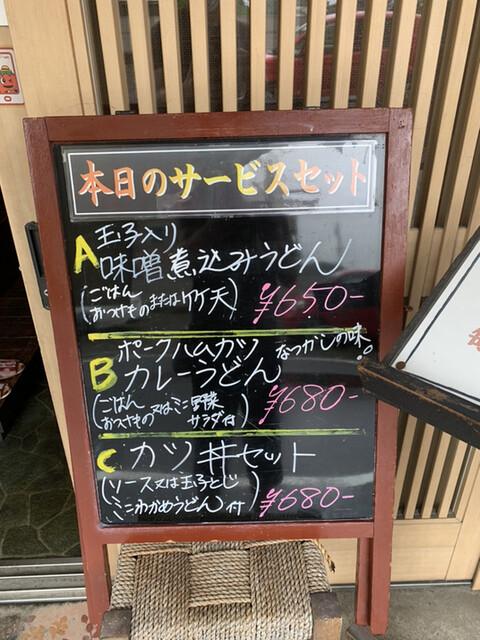 本日のサービスセット
A 玉子入り
味噌煮込みうどん
(ごはん
おつけもの または 竹天) ¥650-
B ポークハムカツ なつかしの味!!
カレーうどん
(ごはん
おつけもの 又は ミニ野菜
サラダ付) ¥680-
C カツ丼セット
(ソース又は玉子とじ
ミニわかめうどん付) ¥680-